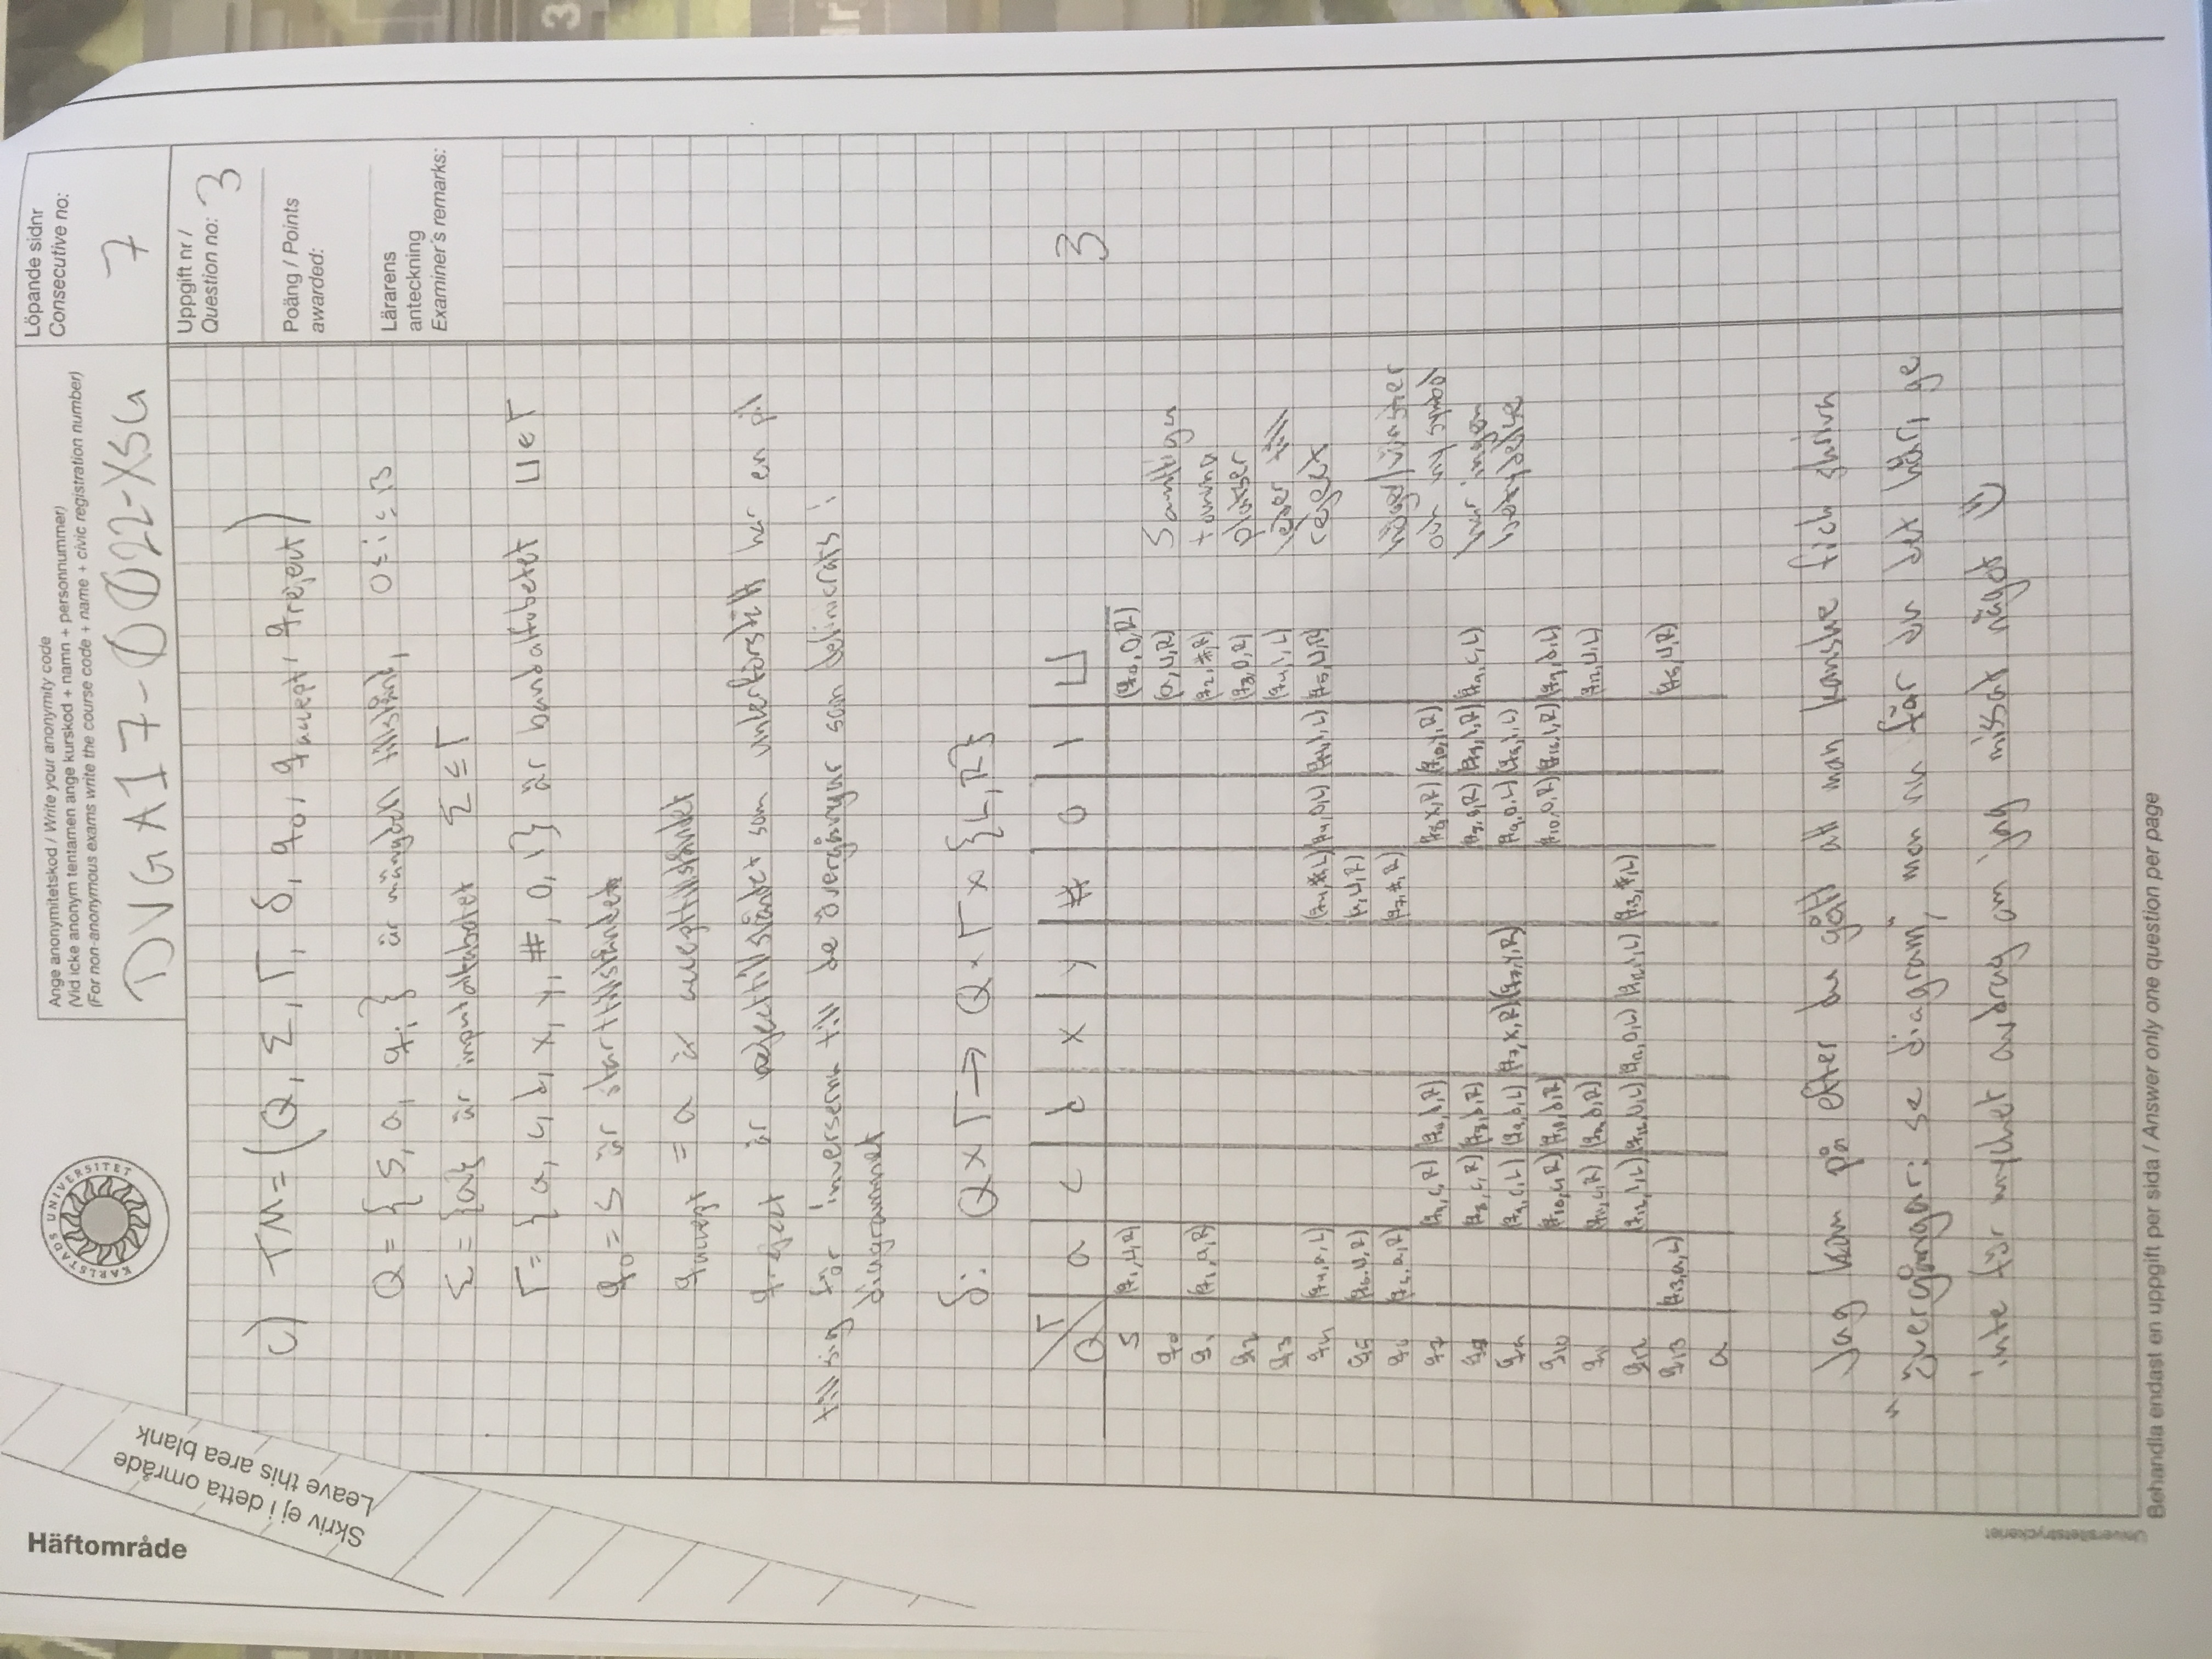 Häftområde
Skriv ej i detta område
Leave this area blank
KARLSTADS UNIVERSITET
Ange anonymitetskod / Write your anonymity code
(Vid icke anonym tentamen ange kurskod + namn + personnummer)
(For non-anonymous exams write the course code + name + civic registration number)
DVGA17-0022-XSG
Löpande sidnr
Consecutive no:
7
Uppgift nr /
Question no: 3
Poäng / Points
awarded:
Lärarens
anteckning
Examiner's remarks:
c) TM = (Q, Σ, Γ, δ, q₀, q accept, q reject)
Q = {s, a, qᵢ} är mängden tillstånd, 0 ≤ i ≤ 13
Σ = {a} är inputalfabetet Σ ⊆ Γ
Γ = {a, c, d, x, y, #, 0, 1} är bandalfabetet ⊔ ∈ Γ
q₀ = s är starttillståndet
q accept = a är accepttillståndet
q reject är rejecttillståndet som underförstått har en pil
till sig för inverserna till de övergångar som definierats i
diagrammet
δ: Q × Γ → Q × Γ × {L, R}
Q Γ a c d x y # 0 1 ⊔
3
s (q₁,⊔,R) (q₀,0,R)
q₀ (a,⊔,R) Samtliga
q₁ (q₁,a,R) (q₂,#,R) tomma
q₂ (q₃,0,R) platser
q₃ (q₄,1,L) leder till
q₄ (q₄,a,L) (q₄,#,L) (q₄,0,L) (q₄,1,L) (q₅,⊔,R) reject
q₅ (q₆,⊔,R) (a,⊔,R)
q₆ (q₆,a,R) (q₇,#,R) höger/vänster
q₇ (q₁₁,c,R) (q₁₁,d,R) (q₈,x,R) (q₁₀,y,R) och ny symbol
q₈ (q₈,c,R) (q₈,d,R) (q₈,0,R) (q₈,1,R) (q₉,c,L) har ingen
q₉ (q₉,c,L) (q₉,d,L) (q₇,x,R) (q₇,y,R) (q₉,0,L) (q₉,1,L) betydelse
q₁₀ (q₁₀,c,R) (q₁₀,d,R) (q₁₀,0,R) (q₁₀,1,R) (q₉,d,L)
q₁₁ (q₁₁,c,R) (q₁₁,d,R) (q₁₂,⊔,L)
q₁₂ (q₁₂,1,L) (q₁₂,0,L) (q₁₂,0,L) (q₁₂,1,L) (q₁₃,#,L)
q₁₃ (q₁₃,a,L) (q₅,⊔,R)
a
Jag kom på efter du gått att man kanske fick skriva
"övergångar: se diagram", men nu får du det här, ge
inte för mycket avdrag om jag missat något
Universitetstryckeriet
Behandla endast en uppgift per sida / Answer only one question per page